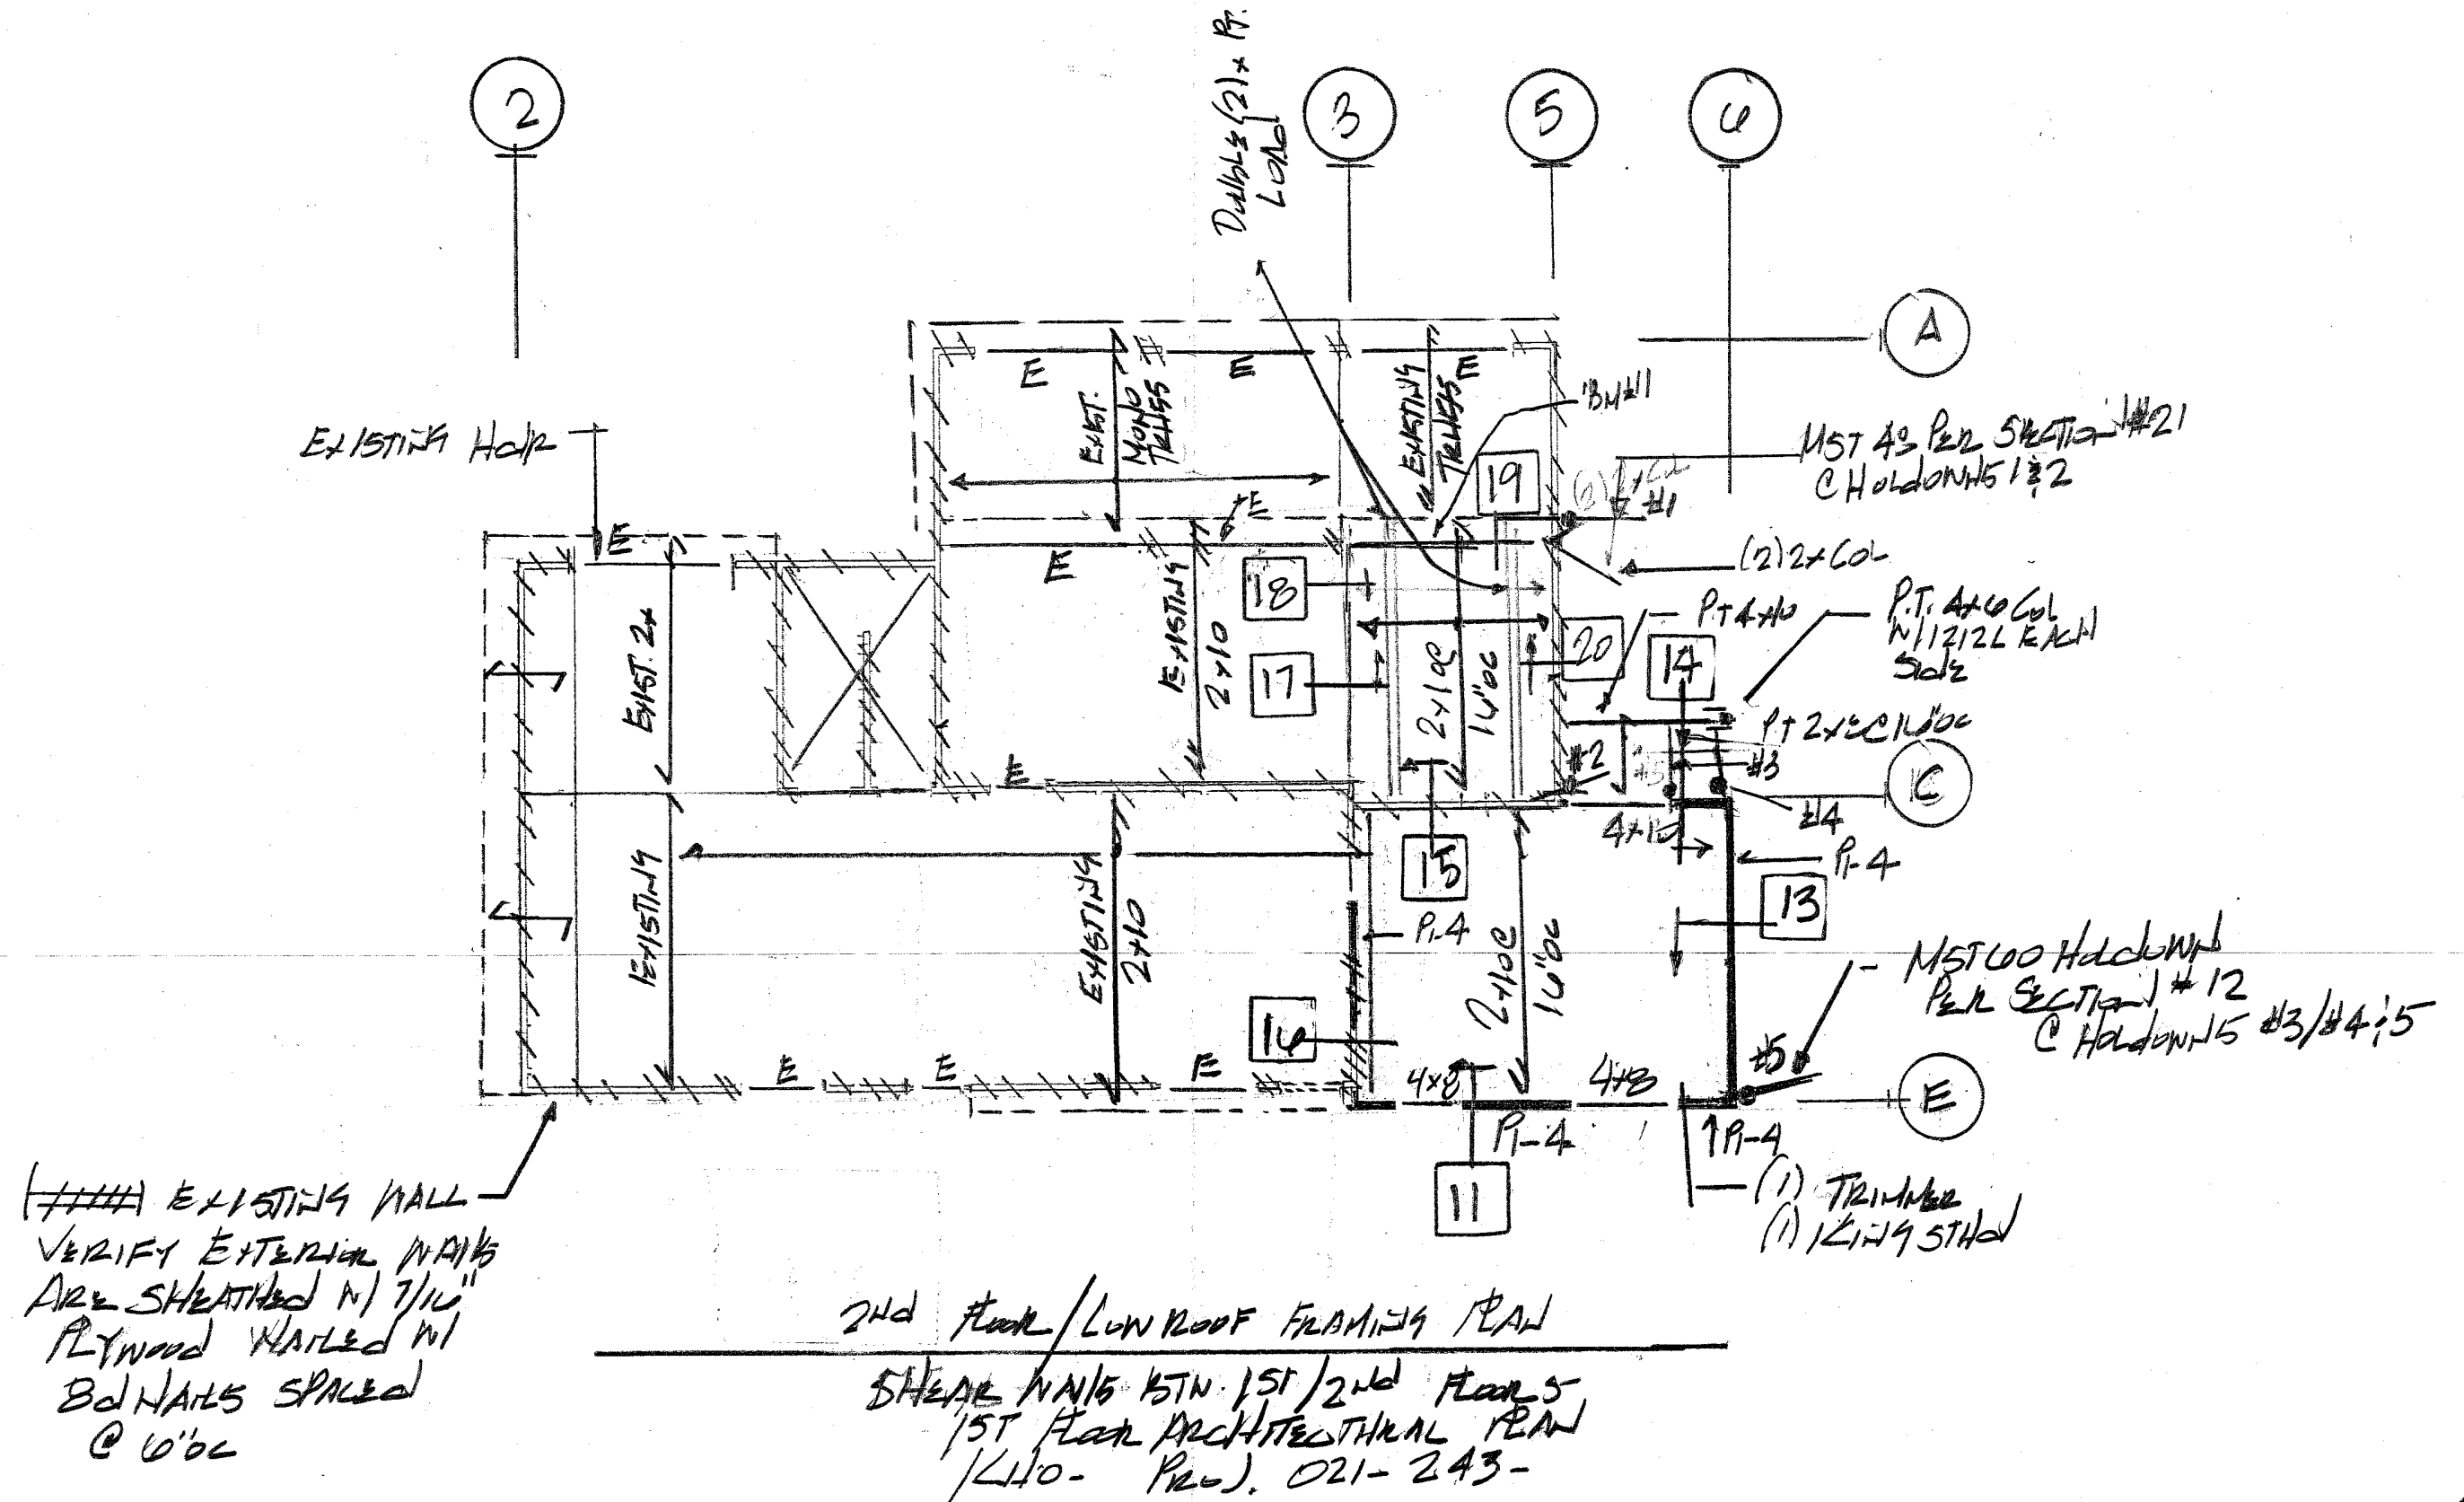 2
3
5
6
Double (2)x Pt.
Load
A
E
E
E
EXIST.
MONO
TRUSS
EXISTING
TRUSSES
BM#1
EXISTING Hdr
19
(2)2x Col
#1
MST 48 PER SECTION #21
@ HOLDOWNS 1 & 2
E
E
E
18
(2) 2x COL
EXIST. 2x
EXISTING
2x10
17
2x10@
16"oc
20
PT 4x10
14
P.T. 4x6 Col
W/1212L EACH
Side
PT 2x8@16"oc
#2
#3
E
C
#4
4x10
P1-4
15
13
EXISTING
EXISTING
2x10
P1-4
2x10@
16"oc
MST60 HOLDOWN
PER SECTION #12
@ HOLDOWNS #3/#4 & 5
16
E
E
E
4x8
4x8
#5
E
P1-4
P1-4
(1) TRIMMER
(1) KING STUD
11
EXISTING WALL
VERIFY EXTERIOR WALLS
ARE SHEATHED W/ 7/16"
PLYWOOD NAILED W/
8d NAILS SPACED
@ 6"oc
2nd FLOOR/LOW ROOF FRAMING PLAN
SHEAR WALLS BTN 1ST/2nd FLOORS
1ST FLOOR ARCHITECTURAL PLAN
PROJ. 021-243-